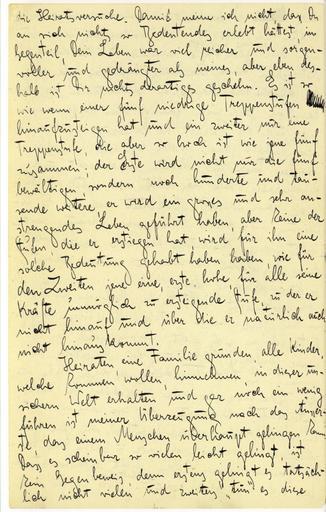 die Heiratsversuche. Damit meine ich nicht daß Du
an sich nicht so Bedeutendes erlebt hättest, im
Gegenteil, Dein Leben war viel reicher und sorgen-
voller und gedrängter als meines, aber eben des-
halb ist Dir nichts derartiges geschehn. Es ist so
wie wenn einer fünf niedrige Treppenstufen
hinaufzusteigen hat und ein zweiter nur eine
Treppenstufe die aber so hoch ist wie jene fünf
zusammen; der Erste wird nicht nur die fünf
bewältigen, sondern noch hunderte und tau-
sende weitere er wird ein großes und sehr an-
strengendes Leben geführt haben, aber keine der
Stufen die er erstiegen hat wird für ihn eine
solche Bedeutung gehabt haben wie für
den Zweiten jene eine, erste, hohe für alle seine
Kräfte unmöglich zu ersteigende Stufe, zu der er
nicht hinauf und über die er natürlich auch
nicht hinauskommt.
Heiraten, eine Familie gründen, alle Kinder,
welche kommen, wollen, hinnehmen, in dieser un-
sichern Welt erhalten und gar noch ein wenig
führen ist meiner Überzeugung nach das Äußer-
ste, das einem Menschen überhaupt gelingen kann
Daß es scheinbar so vielen leicht gelingt ist
kein Gegenbeweis denn erstens gelingt es tatsäch-
lich nicht vielen und zweitens "tun" es diese